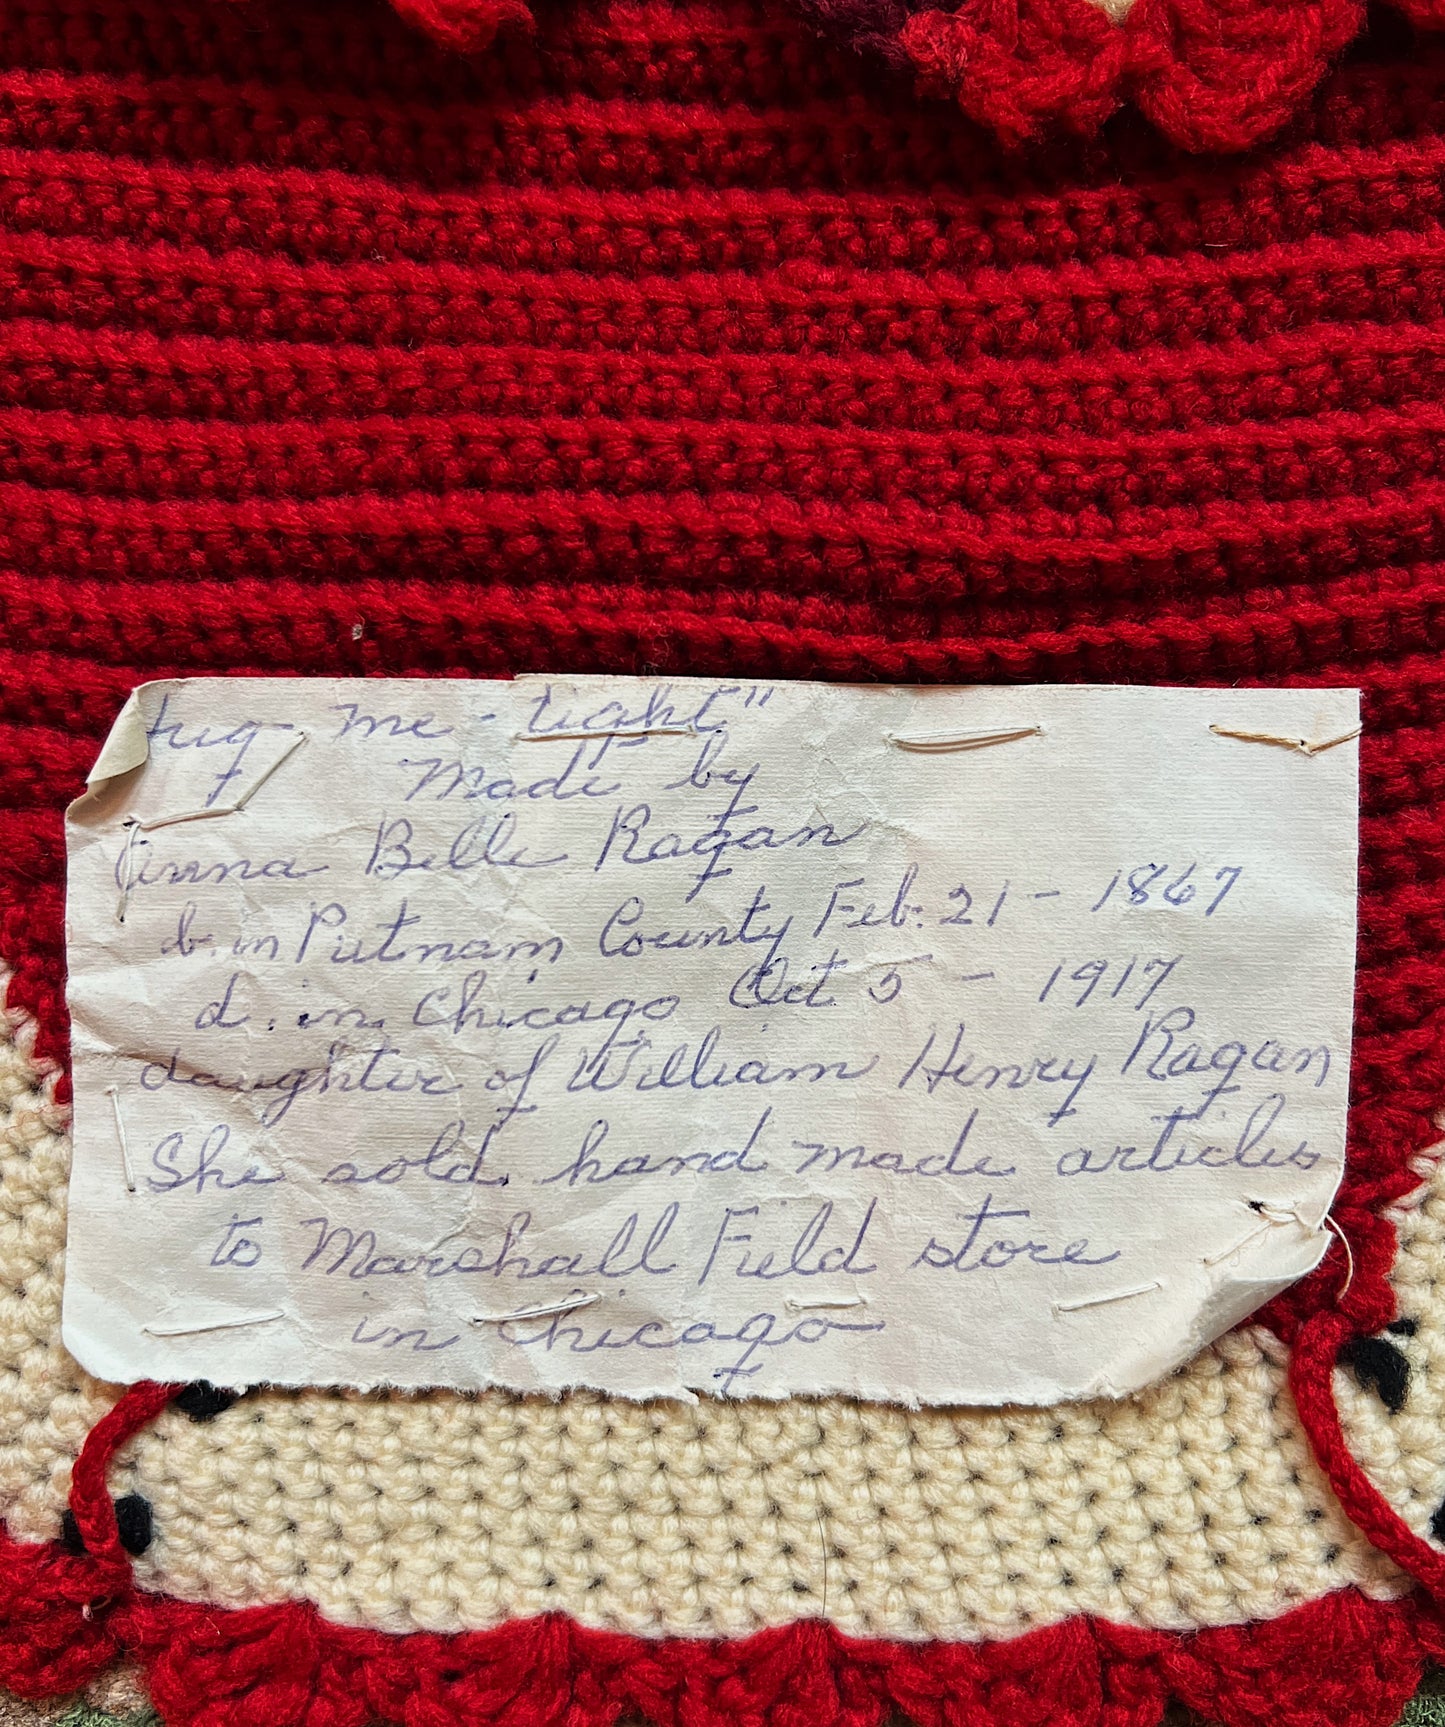 Hug me - tight"
Made by
Anna Belle Ragan
b. in Putnam County Feb. 21 - 1867
d. in Chicago Oct 5 - 1917
daughter of William Henry Ragan
She sold hand made articles
to Marshall Field store
in Chicago